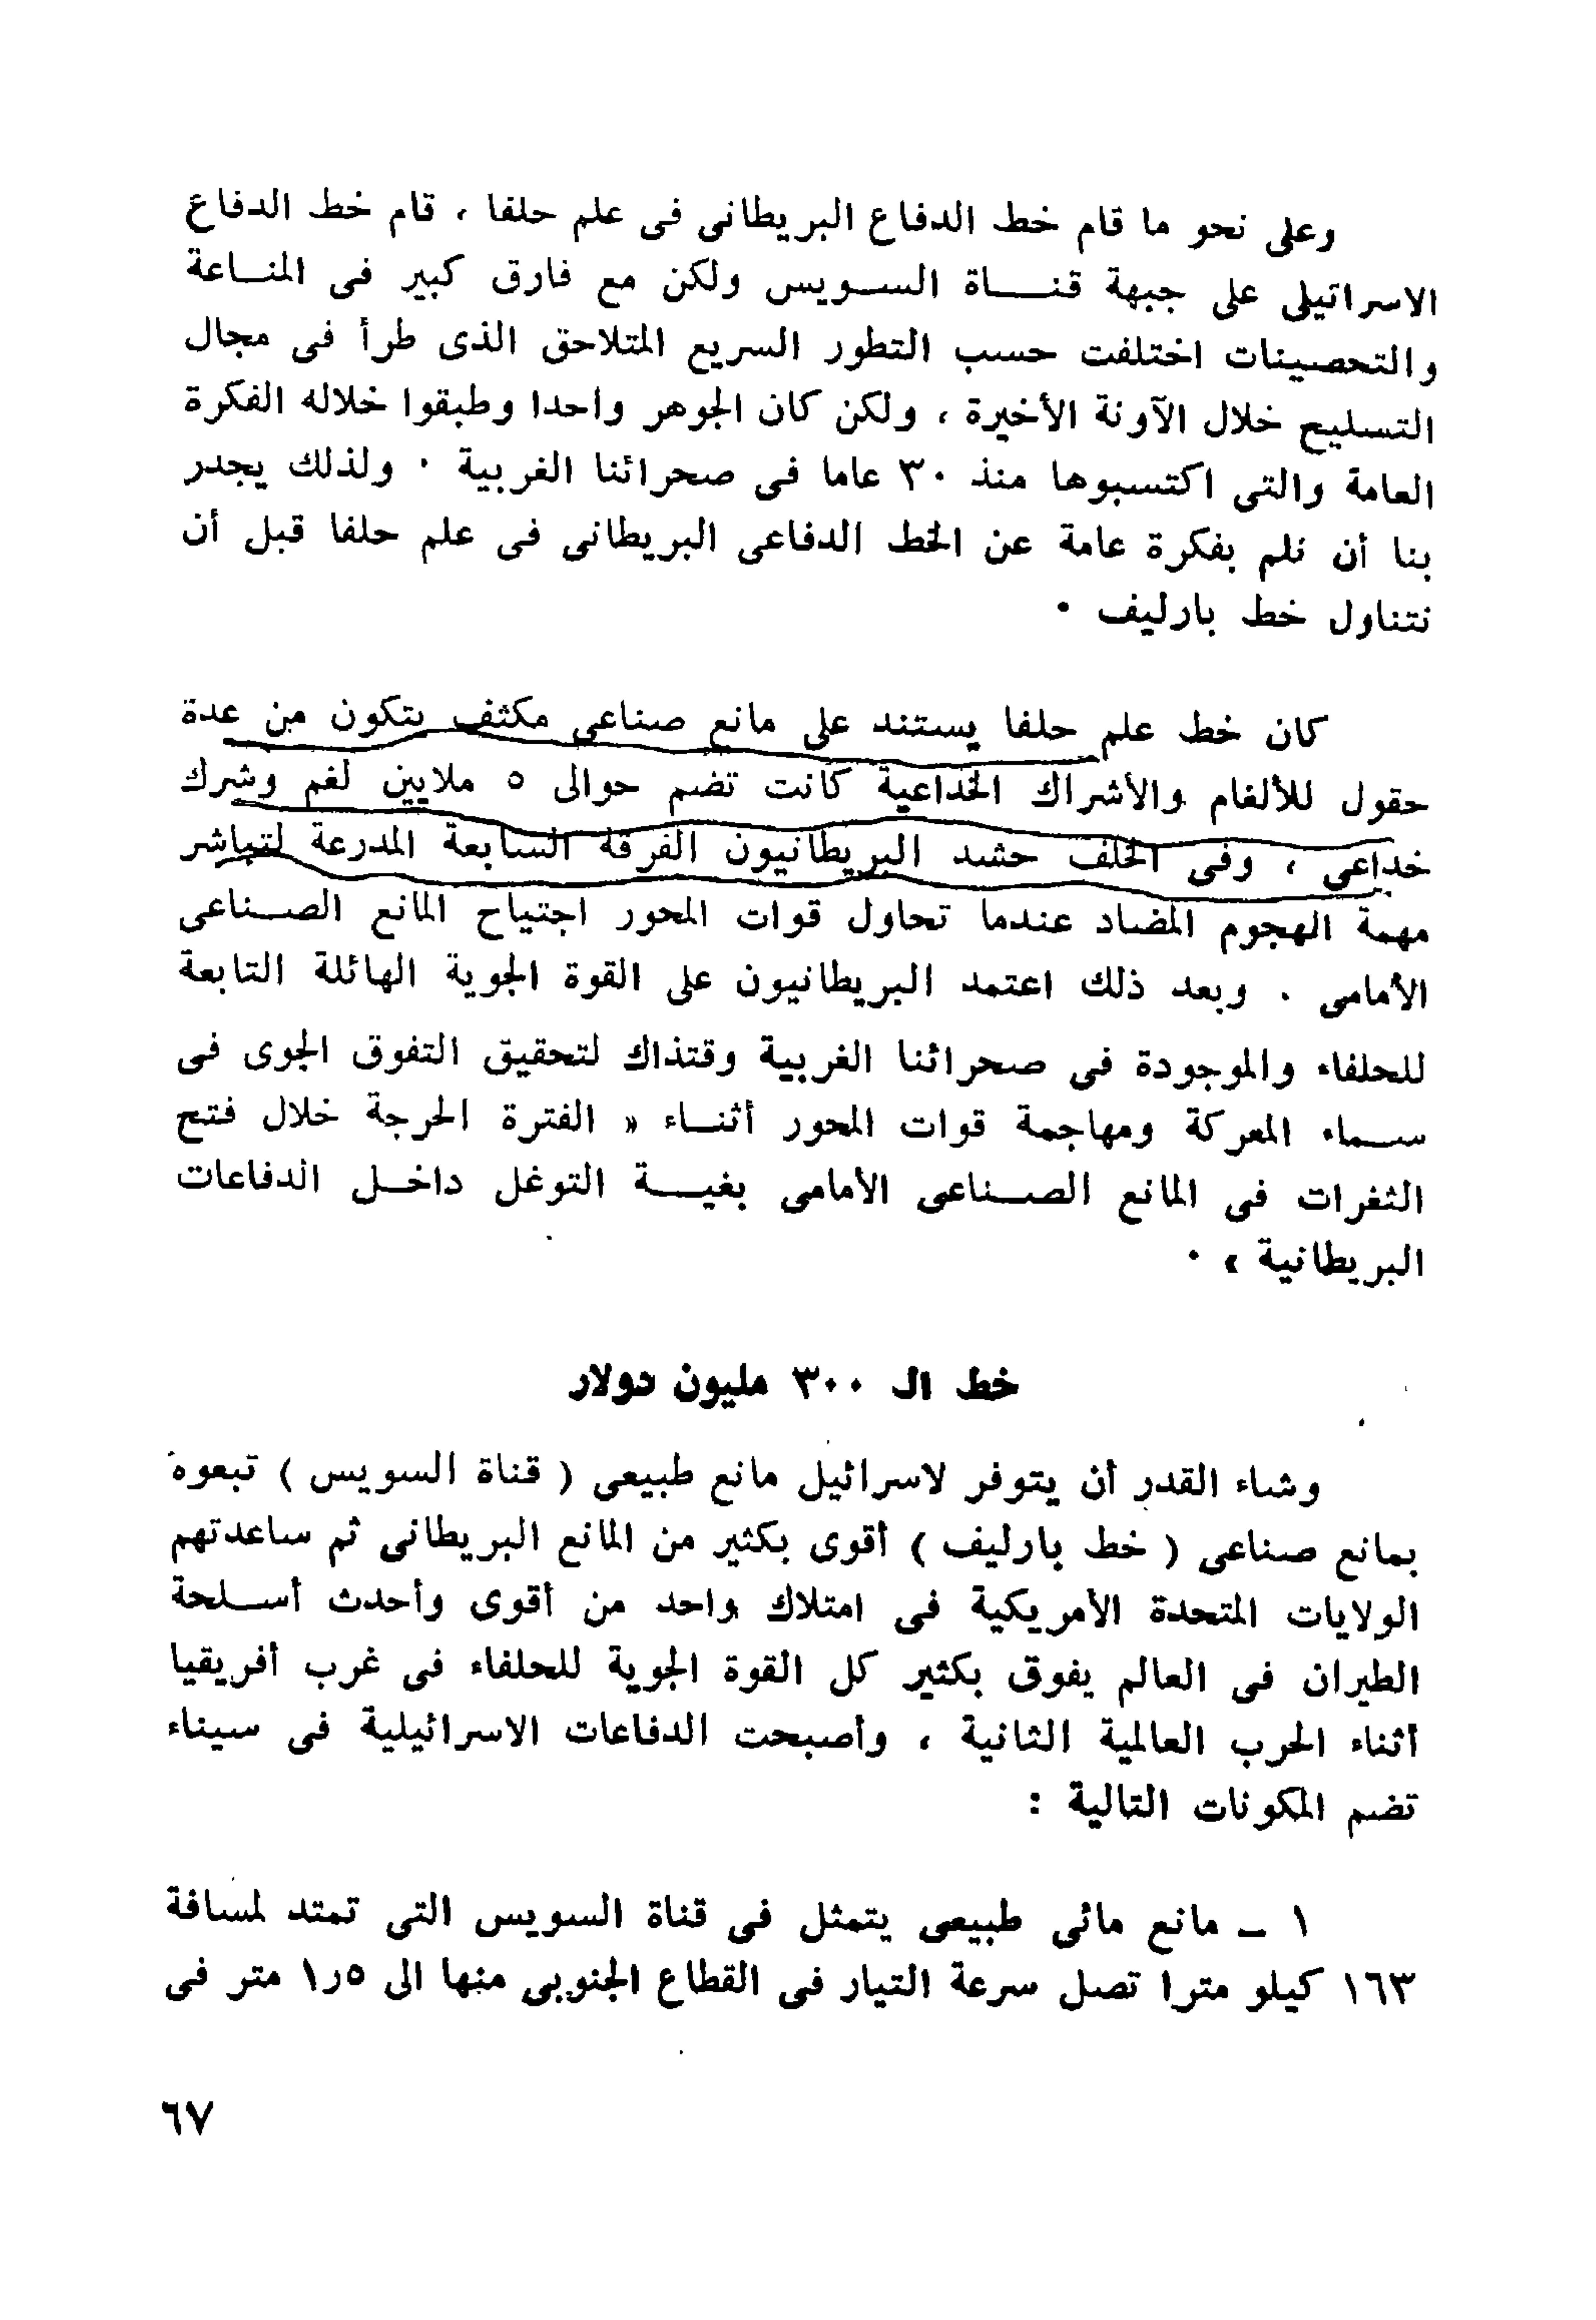 وعلى نحو ما قام خط الدفاع البريطانى فى علم حلفا ، قام خط الدفاع
الاسرائيلى على جبهة قناة السويس ولكن مع فارق كبير فى المناعة
والتحصينات اختلفت حسب التطور السريع المتلاحق الذى طرأ فى مجال
التسليح خلال الآونة الأخيرة ، ولكن كان الجوهر واحدا وطبقوا خلاله الفكرة
العامة والتى اكتسبوها منذ ٣٠ عاما فى صحرائنا الغربية . ولذلك يجدر
بنا أن نلم بفكرة عامة عن الخط الدفاعى البريطانى فى علم حلفا قبل أن
نتناول خط بارليف .
كان خط علم حلفا يستند على مانع صناعى مكثف يتكون من عدة
حقول للألغام والأشراك الخداعية كانت تضم حوالى ٥ ملايين لغم وشرك
خداعى ، وفى الخلف حشد البريطانيون الفرقة السابعة المدرعة لتباشر
مهمة الهجوم المضاد عندما تحاول قوات المحور اجتياح المانع الصناعى
الأمامى . وبعد ذلك اعتمد البريطانيون على القوة الجوية الهائلة التابعة
للحلفاء والموجودة فى صحرائنا الغربية وقتذاك لتحقيق التفوق الجوى فى
سماء المعركة ومهاجمة قوات المحور أثناء « الفترة الحرجة خلال فتح
الثغرات فى المانع الصناعى الأمامى بغية التوغل داخل الدفاعات
البريطانية » .
خط الـ ٣٠٠ مليون دولار
وشاء القدر أن يتوفر لاسرائيل مانع طبيعى ( قناة السويس ) تبعوه
بمانع صناعى ( خط بارليف ) أقوى بكثير من المانع البريطانى ثم ساعدتهم
الولايات المتحدة الأمريكية فى امتلاك واحد من أقوى وأحدث أسلحة
الطيران فى العالم يفوق بكثير كل القوة الجوية للحلفاء فى غرب أفريقيا
أثناء الحرب العالمية الثانية ، وأصبحت الدفاعات الاسرائيلية فى سيناء
تضم المكونات التالية :
١ ــ مانع مائى طبيعى يتمثل فى قناة السويس التى تمتد لمسافة
١٦٣ كيلو مترا تصل سرعة التيار فى القطاع الجنوبى منها الى ١٫٥ متر فى
٦٧